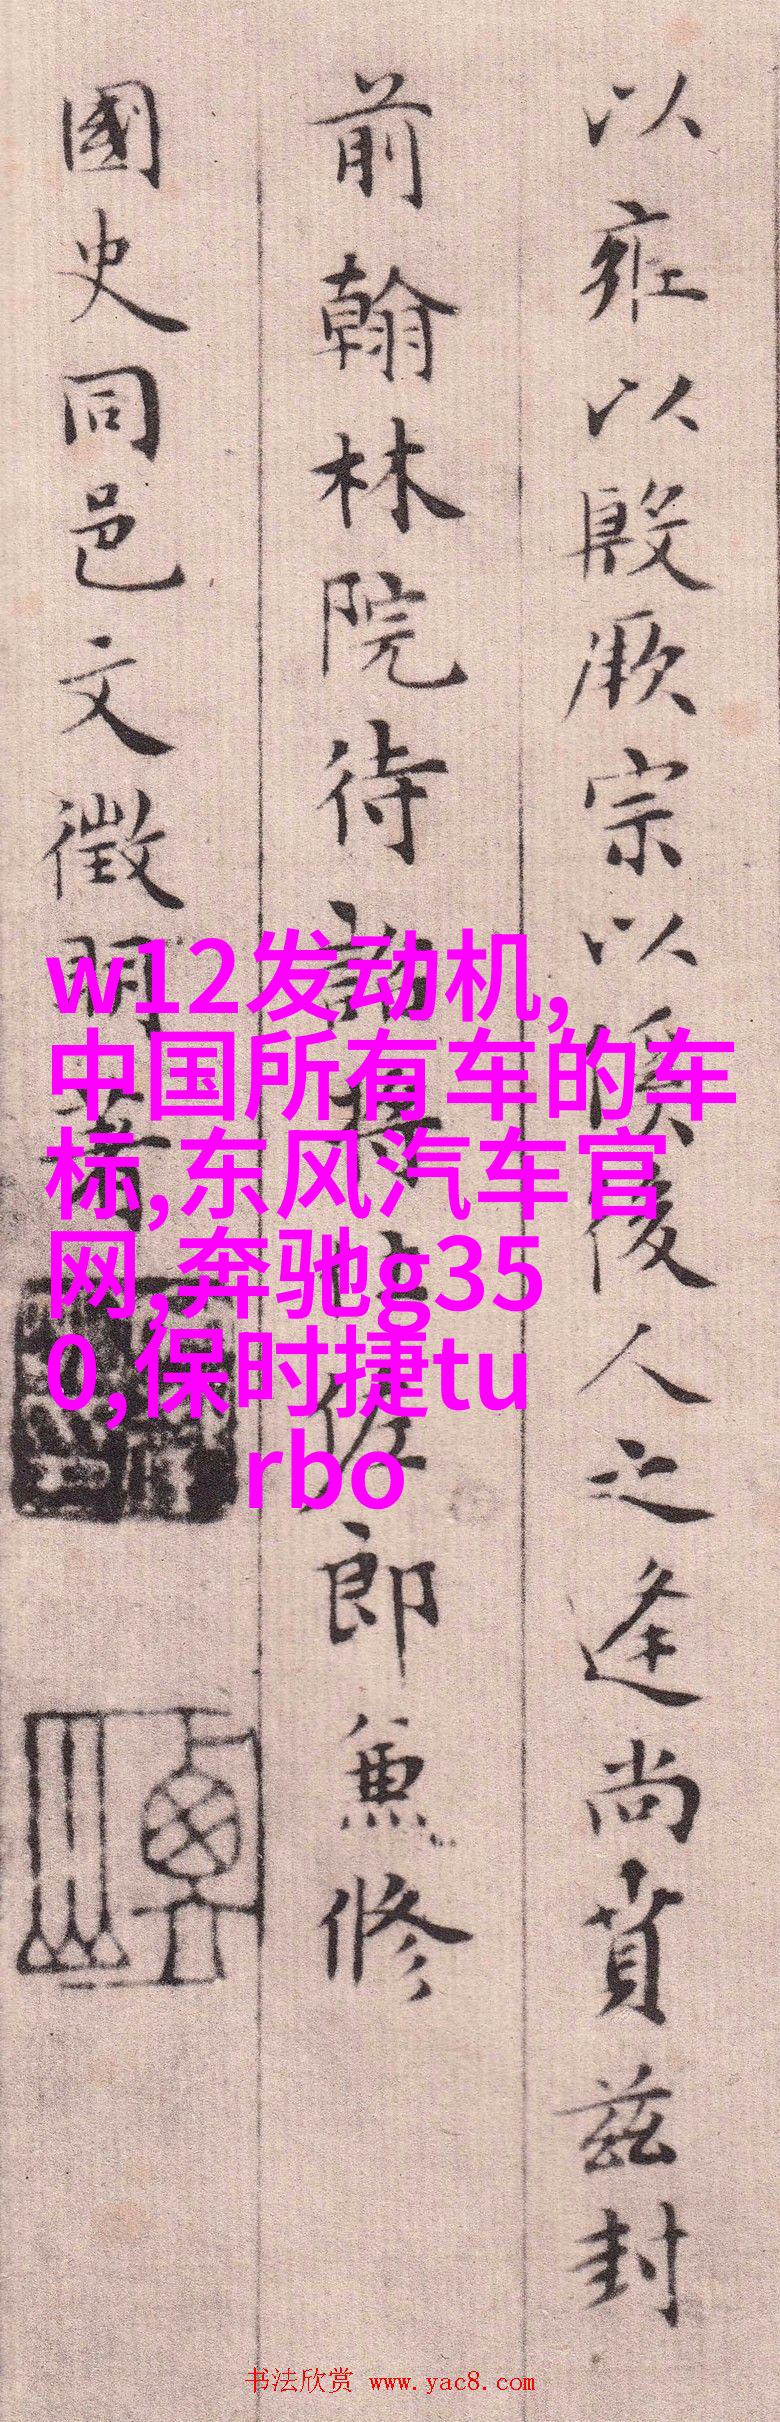 以雍以殷厥宗以僕後人之逢尚賁兹封
前翰林院待詔將仕佐郎兼修
國史同邑文徵明書
w12发动机,
中国所有车的车
标,东风汽车官
网,奔驰g35
0,保时捷tu
rbo
书法欣赏 www.yac8.com